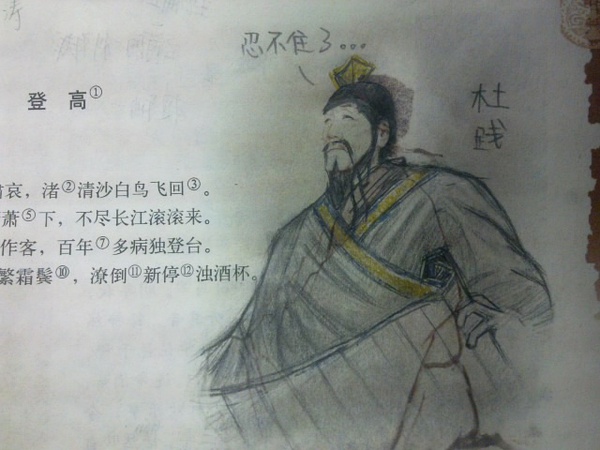 忍不住了...
登 高①
杜
贱
哀，渚②清沙白鸟飞回③。
萧⑤下，不尽长江滚滚来。
作客，百年⑦多病独登台。
繁霜鬓⑩，潦倒⑪新停⑫浊酒杯。